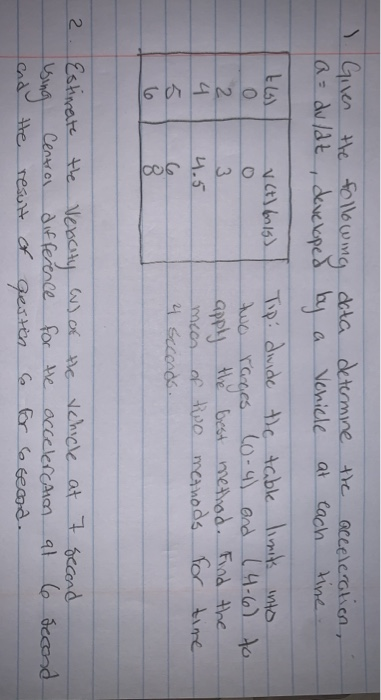 1 Given the following data determine the acceleration,
a = dv/dt, developed by a vehicle at each time.
t(s) v(t)(m/s)
0 0
2 3
4 4.5
5 6
6 8
Tip: divide the table limits into
two ranges (0-4) and (4-6) to
apply the best method. Find the
mean of two methods for time
4 seconds.
2. Estimate the Velocity (v) of the vehicle at 7 second
using Central difference for the acceleration at 6 second
and the result of question 6 for 6 second.